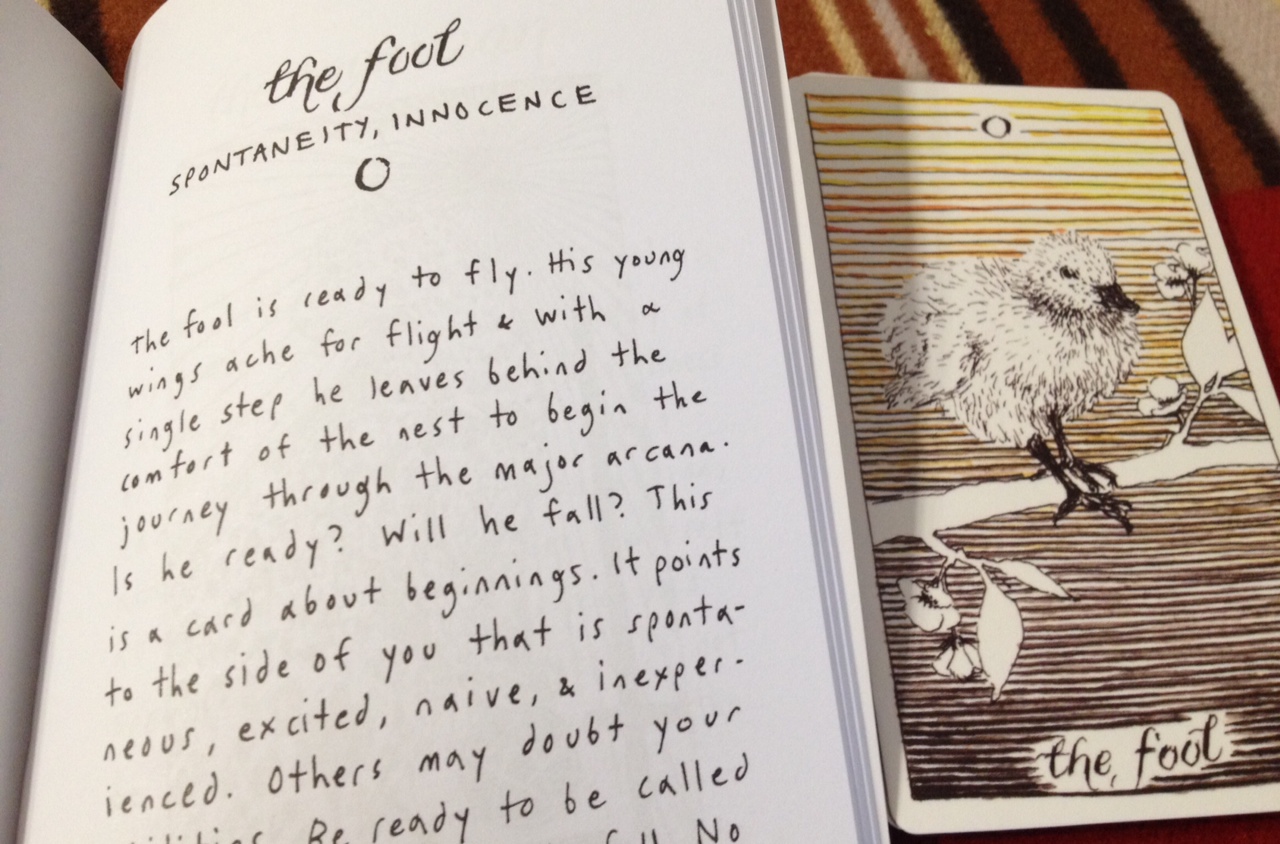 the fool
SPONTANEITY, INNOCENCE
0
the fool is ready to fly. His young
wings ache for flight & with a
single step he leaves behind the
comfort of the nest to begin the
journey through the major arcana.
Is he ready? Will he fall? This
is a card about beginnings. It points
to the side of you that is sponta-
neous, excited, naive, & inexper-
ienced. Others may doubt your
Be ready to be called
No
0
the fool